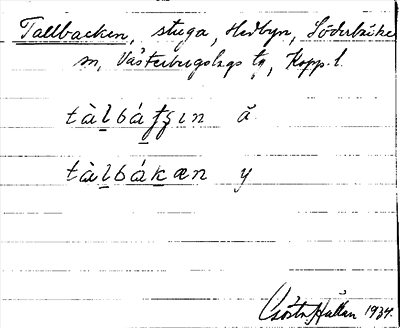 Tallbacken, stuga, Hedbyn, Söderbärke
sn, Västerbergslags tg, Kopp. l.
tàlbáʈʂın ä.
tàlbákæn y
Gösta Hállan 1934.